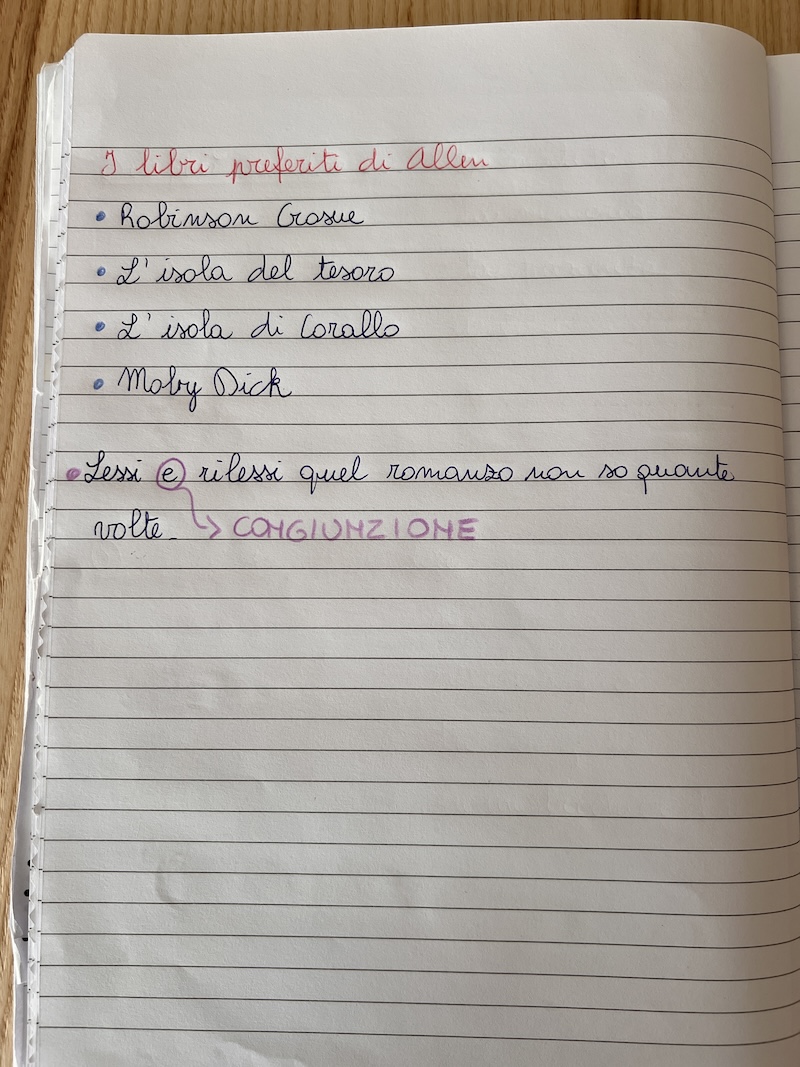 I libri preferiti di Allen
• Robinson Crosue
• L'isola del tesoro
• L'isola di Corallo
• Moby Dick
• Lessi e rilessi quel romanzo non so quante
volte. → CONGIUNZIONE